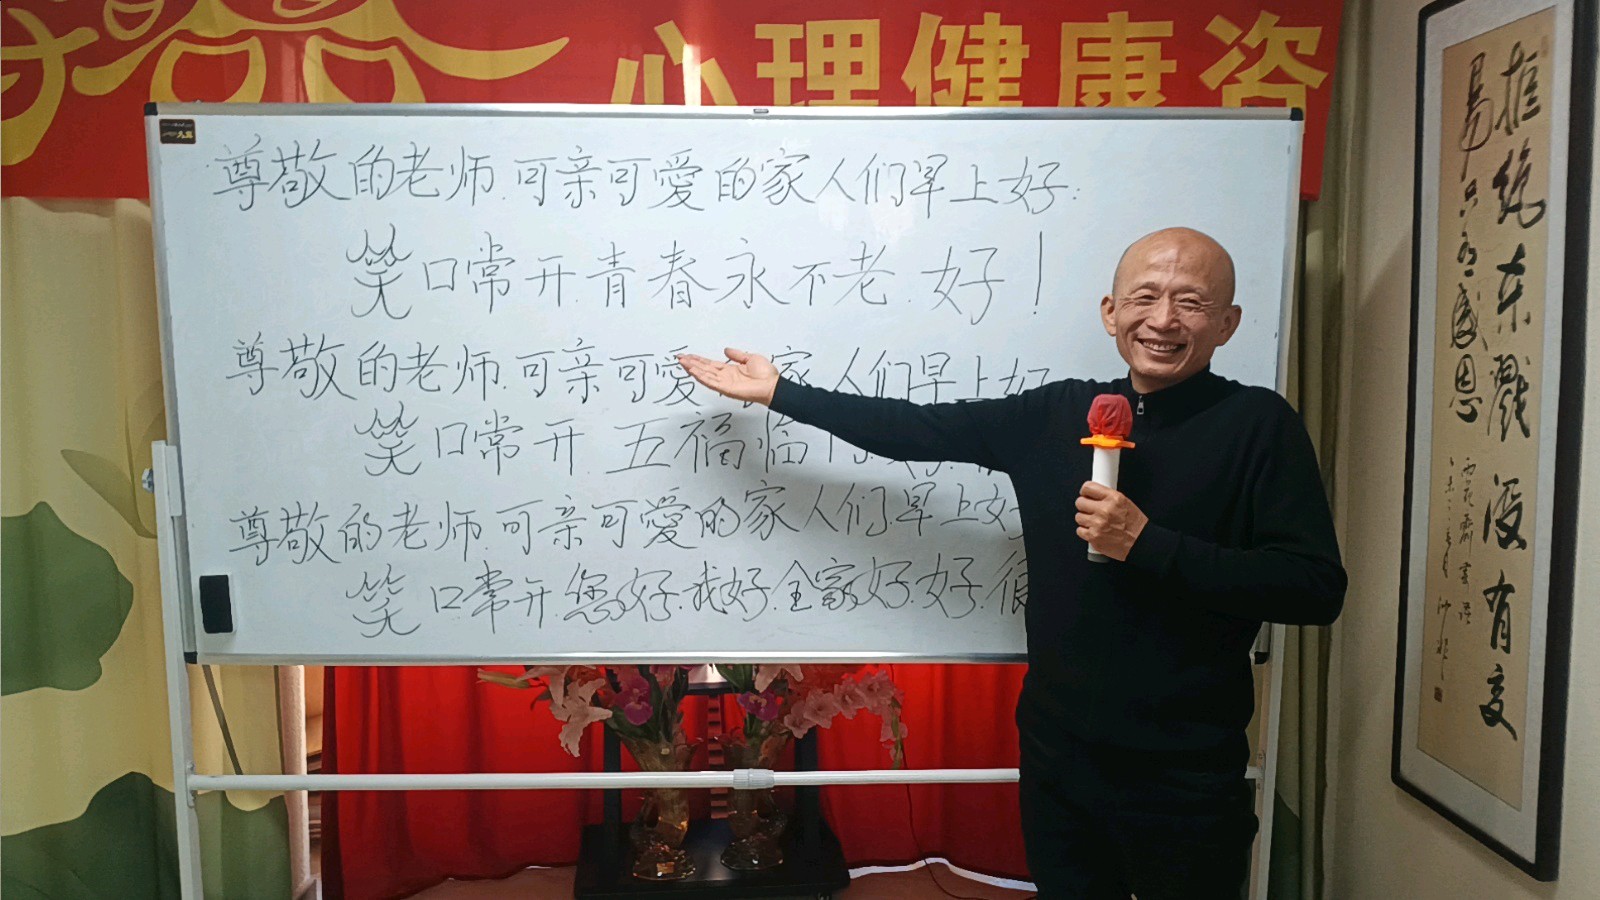 心理健康咨
尊敬的老师.可亲可爱的家人们早上好:
笑口常开.青春永不老.好!
尊敬的老师.可亲可爱的家人们早上好
笑口常开.五福临门.好.
尊敬的老师.可亲可爱的家人们.早上好
笑口常开.您好.我好.全家好.好.很
拒绝东戳没有交
易只有感恩